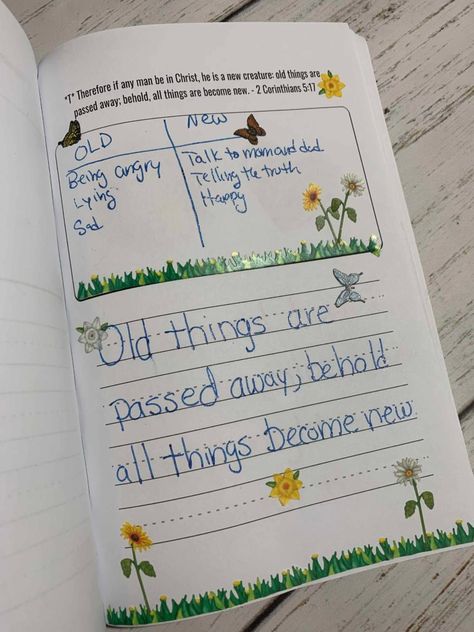 *T* Therefore if any man be in Christ, he is a new creature: old things are
passed away; behold, all things are become new. - 2 Corinthians 5:17
OLD New
Being angry Talk to mom and dad
Lying Telling the truth
Sad Happy
Old things are
passed away; behold
all things become new